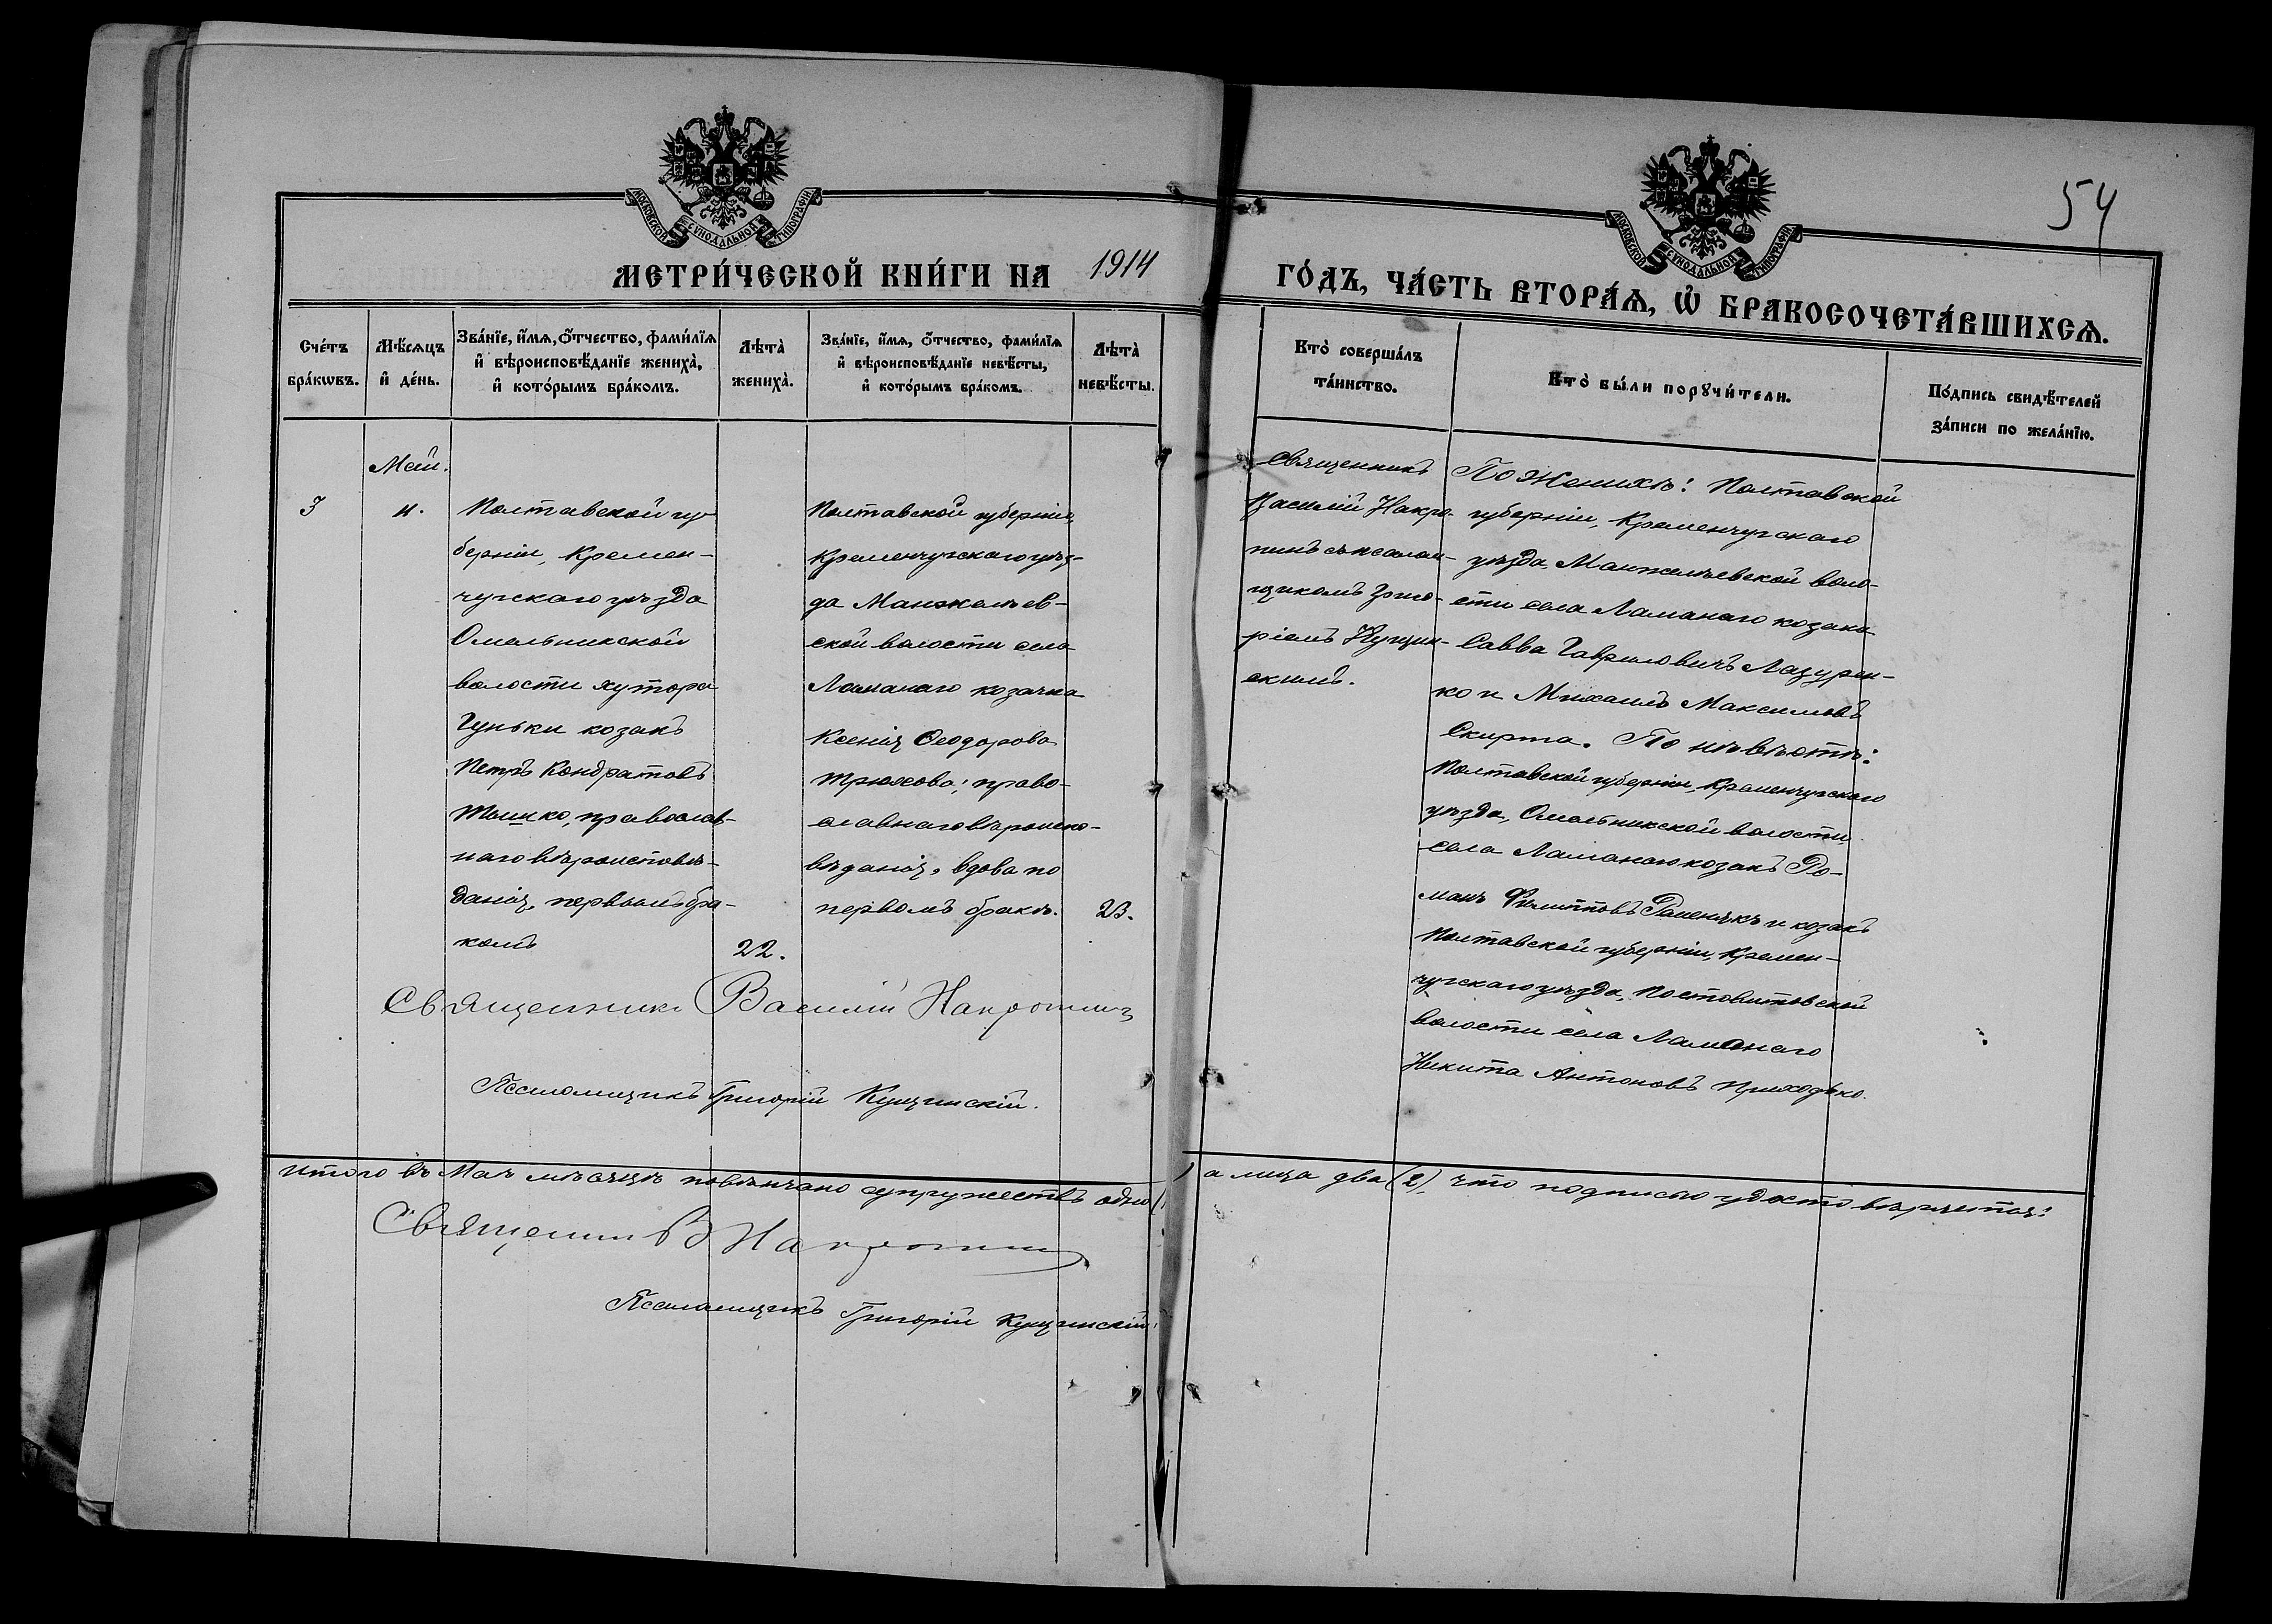 МОСКОВСКОЙ СУНОДАЛЬНОЙ ТИПОГРАФІИ
МОСКОВСКОЙ СУНОДАЛЬНОЙ ТИПОГРАФІИ
54
МЕТРИ́ЧЕСКОЙ КНИ́ГИ НА 1914
ГО́ДЪ, ЧА́СТЬ ВТОРА́Я, Ѡ БРАКОСОЧЕТА́ВШИХСЯ.
Сче́тъ
бра́кѡвъ.
Мѣ́сяцъ
и҆ де́нь.
Зва́нїе, и҆́мя, ѻ҆́тчество, фами́лїя
и҆ вѣроисповѣ́данїе жениха̀,
и҆ кото́рымъ бра́комъ.
Лѣта̀
жениха̀.
Зва́нїе, и҆́мя, ѻ҆́тчество, фами́лїя
и҆ вѣроисповѣ́данїе невѣ́сты,
и҆ кото́рымъ бра́комъ.
Лѣта̀
невѣ́сты.
Кто̀ соверша́лъ
та́инство.
Кто̀ бы́ли порꙋчи́тели.
По́дпись свидѣ́телей
за́писи по жела́нїю.
Май.
3
Полтавской гу-
берніи, Кремен-
чугскаго уѣзда
Омельникской
волости хутора
Гуньки козакъ
Петръ Кондратовъ
Тышко, православ-
наго вѣроисповѣ-
данія, первымъ бра-
комъ
22.
Полтавской губерніи,
Кременчугскаго уѣз-
да Манжелѣев-
ской волости села
Ламанаго козачка
Ксенія Ѳеодорова
Трюхова; право-
славнаго вѣроиспо-
вѣданія, вдова по
первомъ бракѣ.
23.
Священникъ
Василій Накро-
пинъ съ псалом-
щикомъ Григо-
ріемъ Кущин-
скимъ.
По Женихѣ: Полтавской
губерніи, Кременчугскаго
уѣзда, Манжелѣевской воло-
сти села Ламанаго козаки
Савва Гавриловичъ Лазурен-
ко и Михаилъ Максимовъ
Скирта. По нѣвѣстѣ:
Полтавской губерніи, Кременчугскаго
уѣзда, Омельникской волости,
села Ламанаго козакъ Ро-
манъ Филипповъ и козакъ
Полтавской губерніи, Кремен-
чугскаго уѣзда,
волости села Ламанаго
Никита Антоновъ Приходько.
Священникъ Василій Накропинъ
Псаломщикъ Григорій Кущинскій.
Итого въ Маѣ мѣсяцѣ повѣнчано супружествъ одно (1) а лица два (2), что подписью удостовѣряется:
Священник В Накропин
Псаломщикъ Григорій Кущинскій.